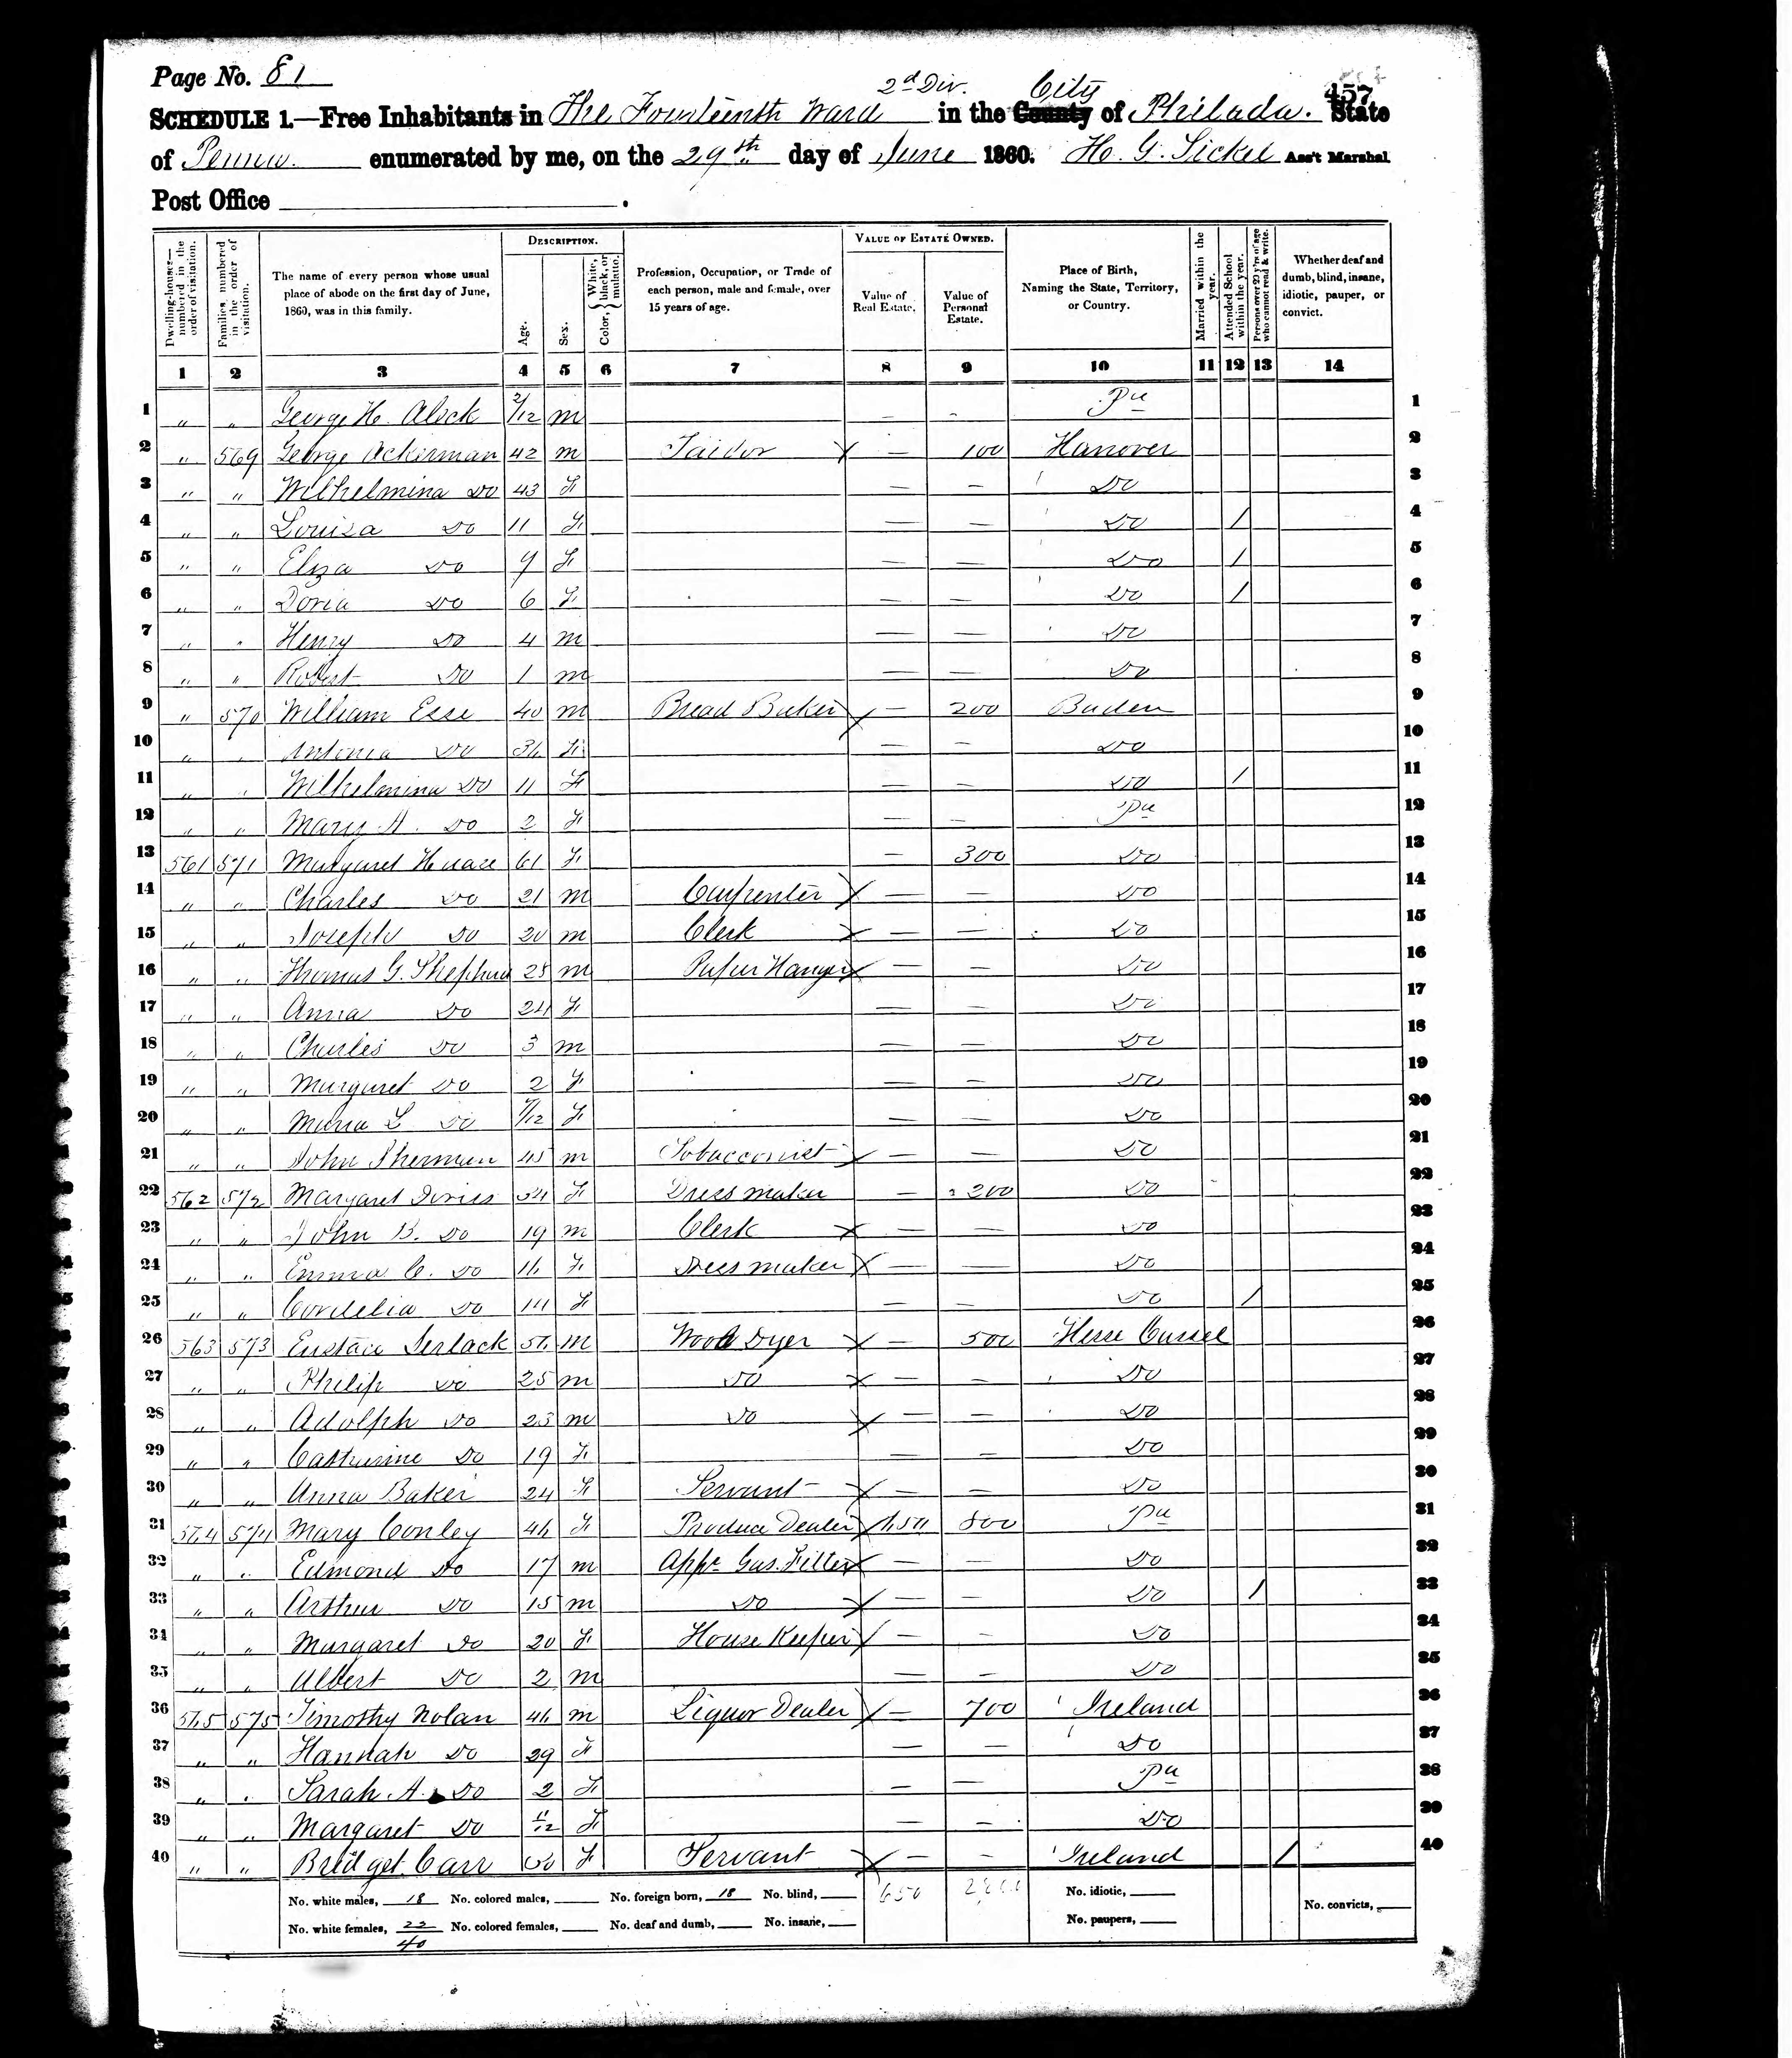 Page No. 81
457
2d Div. City
SCHEDULE 1.—Free Inhabitants in The Fourteenth Ward in the County of Philada. State
of Penna. enumerated by me, on the 29th day of June 1860. H. G. Sickel Ass't Marshal
Post Office
Dwelling-houses—numbered in the order of visitation.
Families numbered in the order of visitation.
The name of every person whose usual place of abode on the first day of June, 1860, was in this family.
DESCRIPTION.
Age.
Sex.
Color, White, black, or mulatto.
Profession, Occupation, or Trade of each person, male and female, over 15 years of age.
VALUE OF ESTATE OWNED.
Value of Real Estate.
Value of Personal Estate.
Place of Birth, Naming the State, Territory, or Country.
Married within the year.
Attended School within the year.
Persons over 20 y'rs of age who cannot read & write.
Whether deaf and dumb, blind, insane, idiotic, pauper, or convict.
1 2 3 4 5 6 7 8 9 10 11 12 13 14
1 " " George H. Alock 2/12 m — - Pa 1
2 " 569 George Ackerman 42 m Tailor X — 100 Hanover 2
3 " " Wilhelmina Do 43 F — — Do 3
4 " " Louisa Do 11 F — — Do / 4
5 " " Eliza Do 9 F — — Do / 5
6 " " Doria Do 6 F — — Do / 6
7 " " Henry Do 4 m — — Do 7
8 " " Robert Do 1 m — — Do 8
9 " 570 William Esse 40 m Bread Baker X — 200 Baden 9
10 " " Antonia Do 36 F — — Do 10
11 " " Wilhelmina Do 11 F — — Do / 11
12 " " Mary A. Do 2 F — — Pa 12
13 561 571 Margaret 61 F — 300 Do 13
14 " " Charles Do 21 m Carpenter X — — Do 14
15 " " Joseph Do 20 m Clerk X — — Do 15
16 " " Thomas G. 25 m Paper Hanger X — — Do 16
17 " " Anna Do 24 F — — Do 17
18 " " Charles Do 3 m — — Do 18
19 " " Margaret Do 2 F — — Do 19
20 " " Maria L Do /12 F — — Do 20
21 " " John Sherman 45 m Tobacconist X — — Do 21
22 562 572 Margaret F Dress maker — 200 Do 22
23 " " John B. Do 19 m Clerk X — — Do 23
24 " " Emma C. Do 16 F Dress maker X — — Do 24
25 " " Cordelia Do 14 F — — Do / 25
26 563 573 Eustace Serlack 56 m Wool Dyer X — 500 Hesse Cassel 26
27 " " Philip Do 25 m Do X — — Do 27
28 " " Adolph Do 23 m Do X — — Do 28
29 " " Catharine Do 19 F — — Do 29
30 " " Anna Baker 24 F Servant X — — Do 30
31 564 574 Mary Conley 46 F Produce Dealer X 650 800 Pa 31
32 " " Edmond Do 17 m App. Gas Fitter X — — Do 32
33 " " Arthur Do 15 m Do X — — Do / 33
34 " " Margaret Do 20 F House Keeper X — — Do 34
35 " " Albert Do 2 m — — Do 35
36 565 575 Timothy Nolan 46 m Liquor Dealer X — 700 Ireland 36
37 " " Hannah Do 29 F — — Do 37
38 " " Sarah A. Do 2 F — — Pa 38
39 " " Margaret Do 11/12 F — — Do 39
40 " " Bridget Carr F Servant X — — Ireland / 40
No. white males, 18 No. colored males, No. foreign born, 18 No. blind, 650 No. idiotic,
No. white females, 22 No. colored females, No. deaf and dumb, No. insane, No. paupers, No. convicts,
40